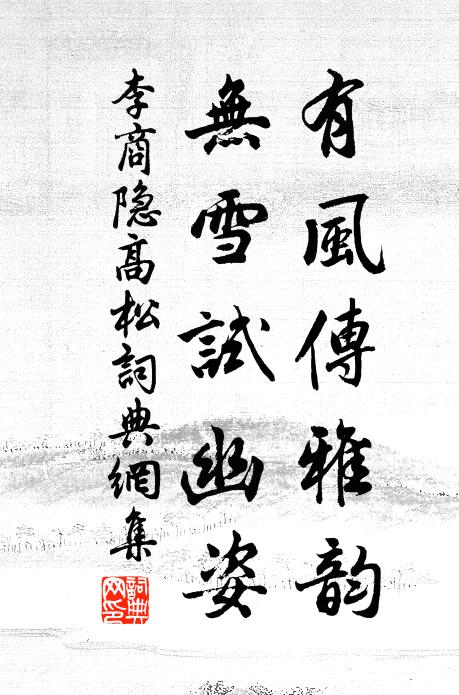 有風傳雅韵
無雪試幽姿
李商隐高松詞典網集
詞典
网印